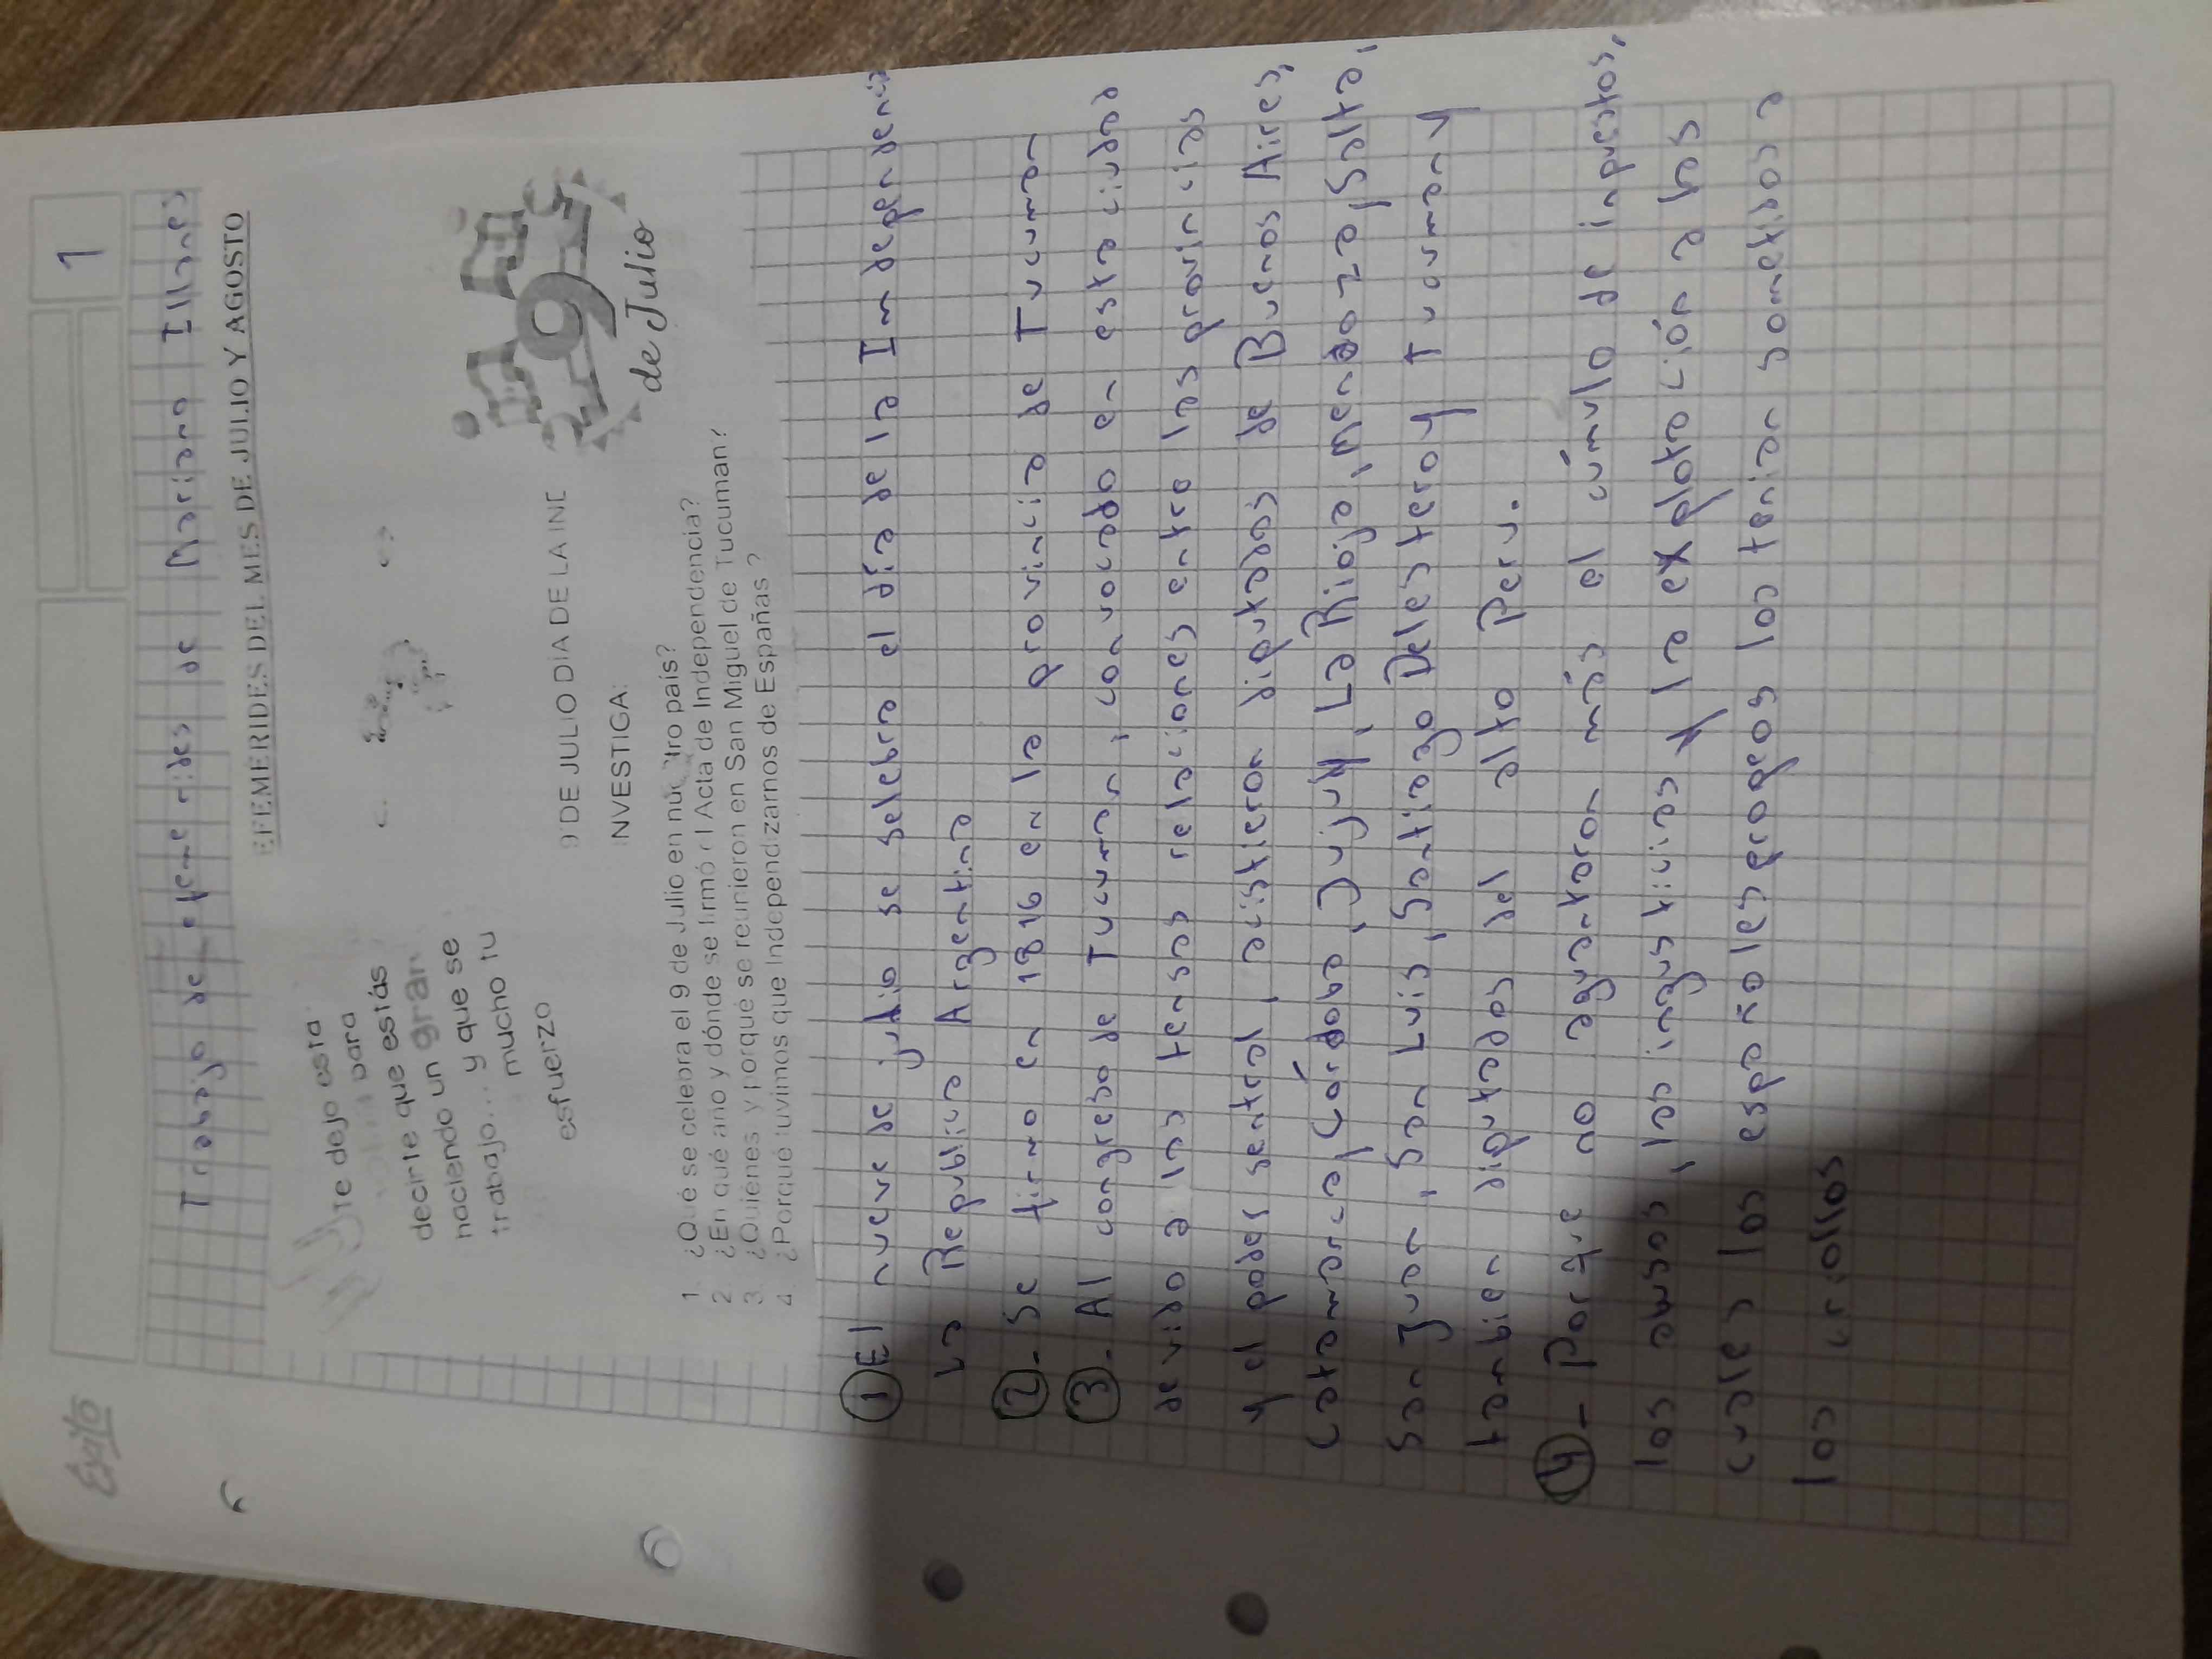 Éxito
1
Trabajo de efemerides de Mariano Illanes
EFEMERIDES DEL MES DE JULIO Y AGOSTO
te dejo esta
para
decirte que estás
haciendo un gran
trabajo... y que se
mucho tu
esfuerzo
9 DE JULIO DIA DE LA INC
INVESTIGA:
9
de Julio
1. ¿Qué se celebra el 9 de Julio en nuestro país?
2. ¿En qué año y dónde se firmó el Acta de Independencia?
3. ¿Quiénes y porqué se reunieron en San Miguel de Tucuman?
4. ¿Porqué tuvimos que Independizarnos de Españas ?
1 El nueve de julio se selebra el día de la Imdependencia
La Republica Argentina
2- Se firmo en 1816 en la provincia de Tucuman
3- Al congreso de Tucuman, convocado en esta ciudad
devido a las tensas relaciones entre las provincias
y el poder sentral, asistieron diputados de Buenos Aires,
Catamarca, Córdoba, Jujuy, La Rioja, Mendoza, Salta,
San Juan, San Luis, Santiago Del estero y Tucuman y
tambien diputados del alto Peru.
4- Por que no aguantaron más el cúmulo de inpuestos,
los abusos, las ingusticias y la explotación a las
cuales los españoles peogeos los tenian sometidos a
los criollos